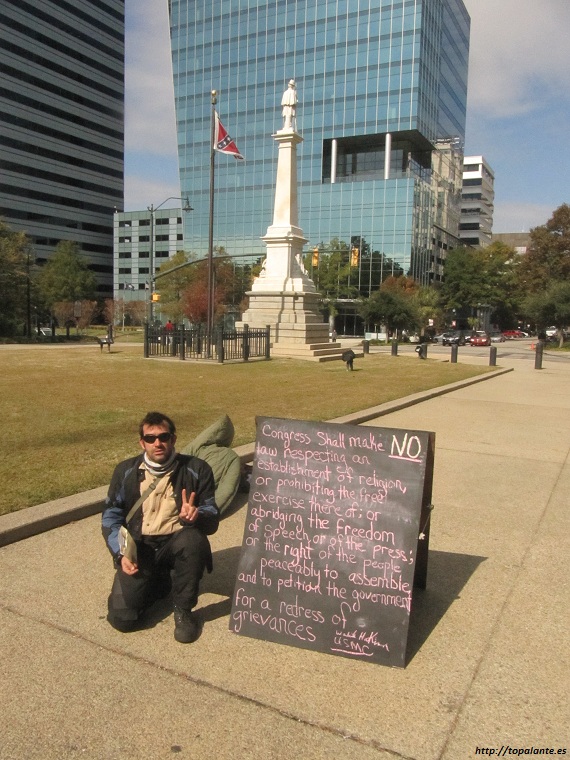 Congress Shall make NO
law respecting an
establishment of religion,
or prohibiting the free
exercise there of; or
abridging the freedom
of speech, or of the press;
or the right of the people
peaceably to assemble,
and to petition the government
for a redress of
grievances
USMC
http://topalante.es